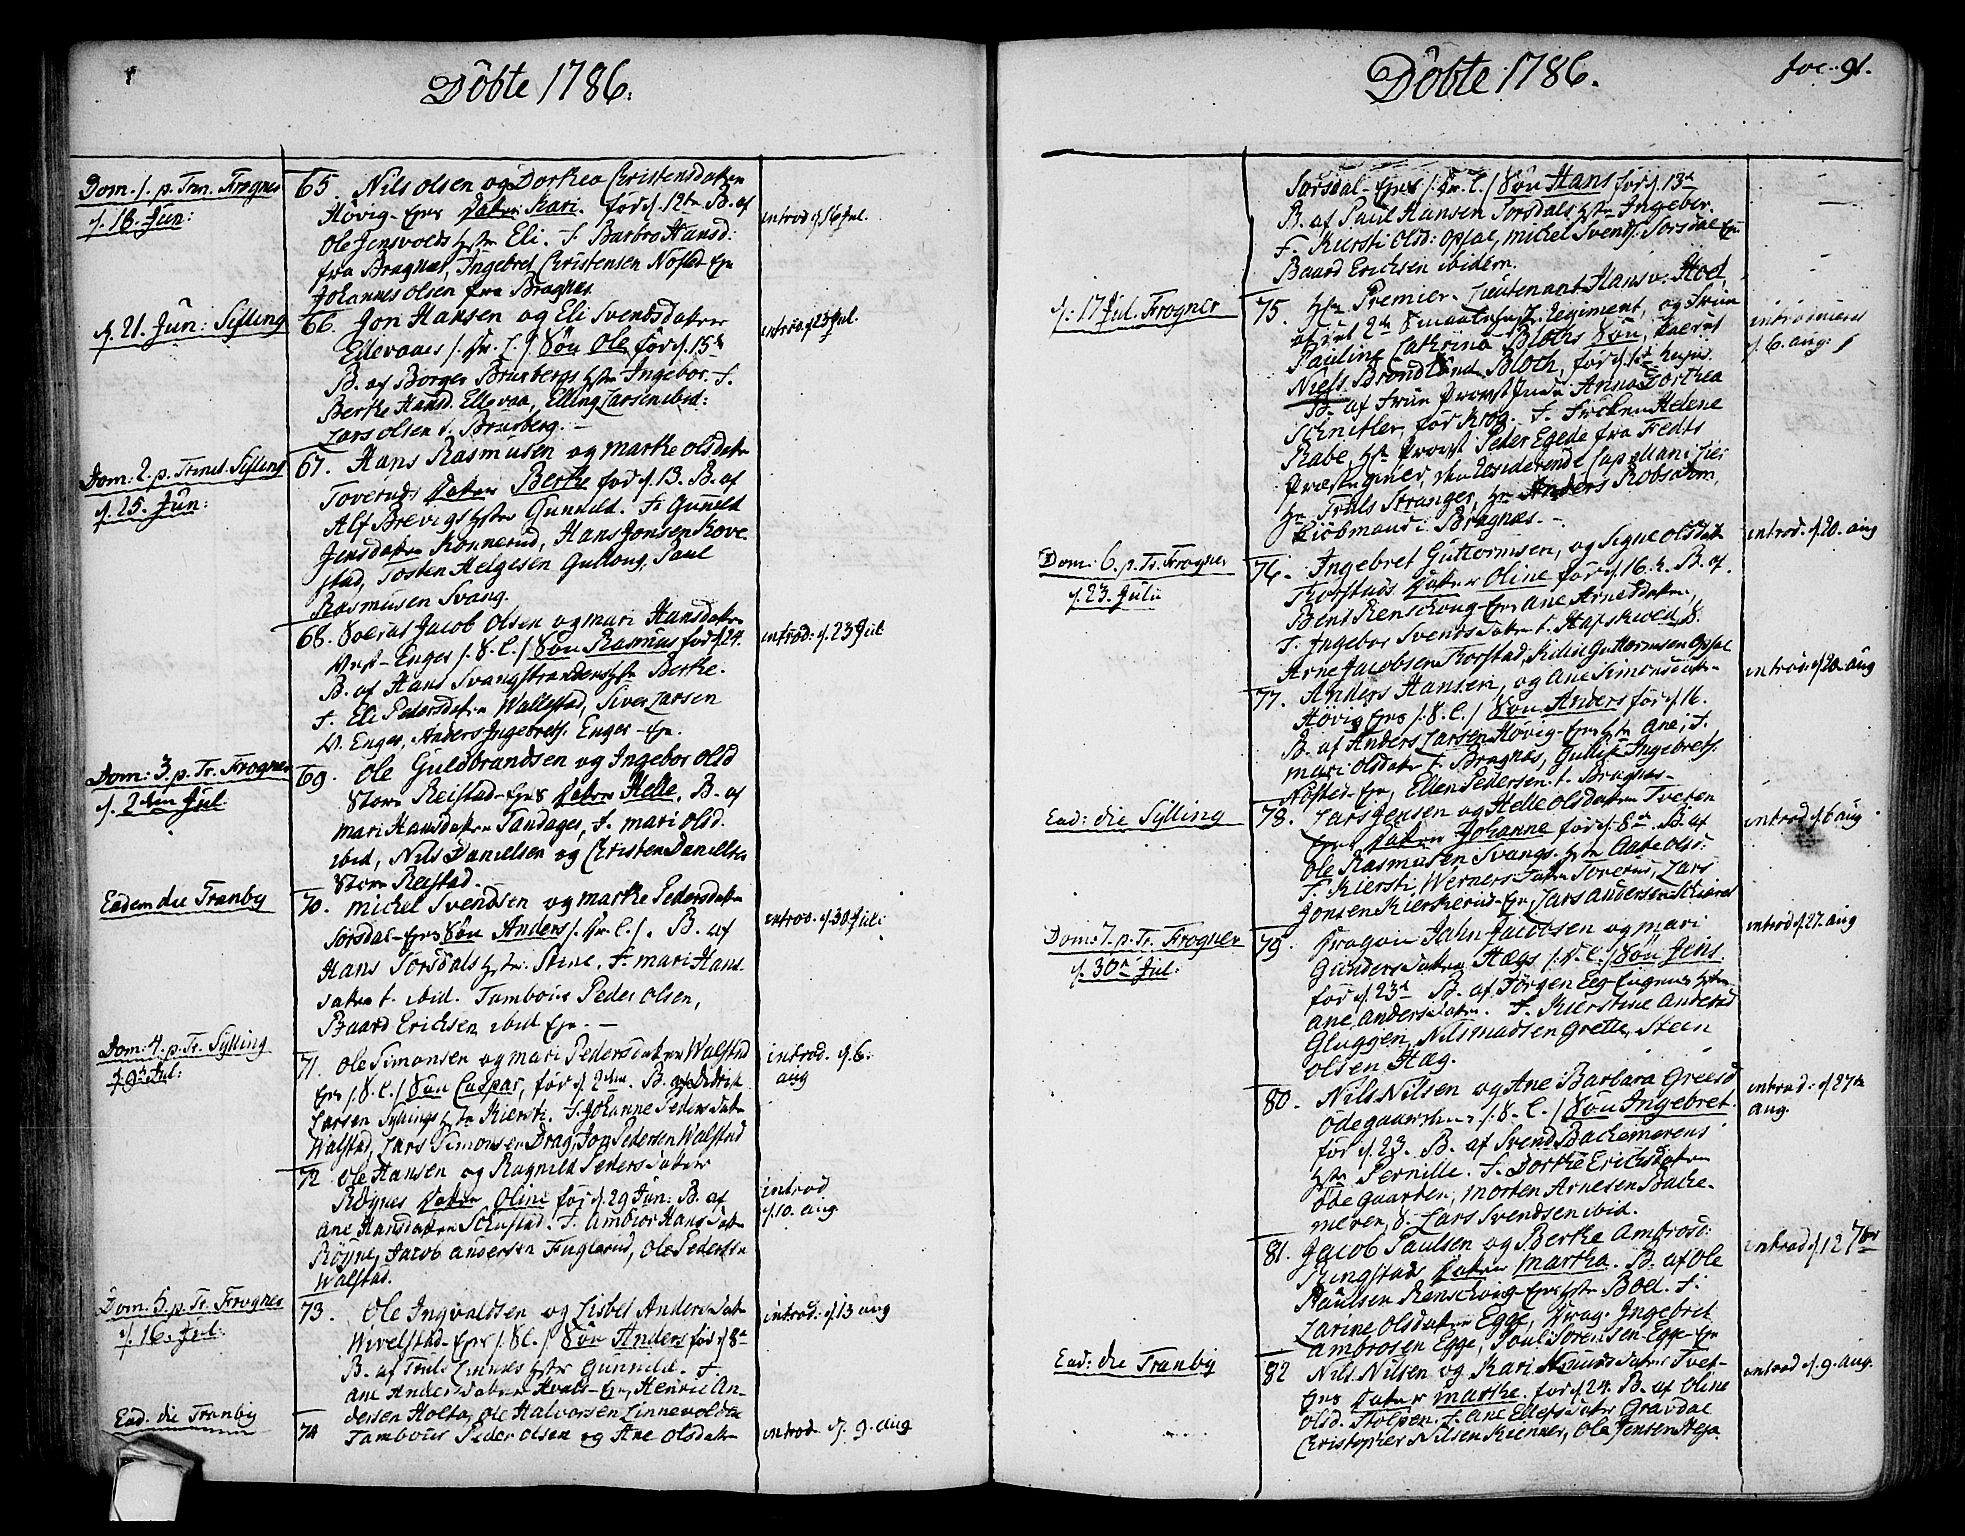 Döbte 1786.
Dom. 1. p. Trin. Frogner
d. 18. Jun:
65. Nils Olsen og Dorthea Christensdaten
Hövig-Ejes Daten Kari. föd d. 12te B. af
Ole Jensvolds hstr Eli. F. Barbro Hansd:
fra Bragnæs, Ingebret Christensen Nøsted Eje
Johannes Olsen fra Bragnæs.
introd d. 16 Jul.
d. 21. Jun: Sylling
66. Jon Hansen og Eli Svendsdaten
Ellevaaes /: Dr. C. / Sön Ole föd d. 15de
B. af Borger Brusbergs hstr Ingebor. F.
Berthe Hansd. Ellevaa, Elling Larsen ibid:
Lars Olsen s. Brusberg. —
introd d 23 Jul.
Dom: 2. p. Trinit. Sylling
d. 25. Jun:
67. Hans Rasmusen og Marthe Olsdaten
Toveruds Daten Berthe föd d. 13. B. af
Alf Brevigs hstr Gunnild. F. Gunild
Jensdaten Konnerud, Hans Jonsen Kove
stad, Tosten Helgesen Gulhoug, Paul
Rasmusen Svang.
68. Jacob Olsen og Mari Hansdaten
Enges /: S. C. / Sön Rasmus föd d 24.
B. af Hans Svangstrandens hstr Berthe.
F. Eli Pedersdaten Wallestad, Siver Larsen
V. Enger, Anders Ingebretss. Enger-Eje.
introd: d. 23 Jul:
Dom: 3. p. Tr. Frogner
d. 2den Jul.
69. Ole Guldbrandsen og Ingebor Olsd
Store Reistad-Ejes Daten Helle. B. af
Mari Hansdaten Tandager, F. Mari Olsd.
ibid, Nils Danielsen og Christen Danielsen
Store Reistad.
Eadem die Tranby
70. Michel Svendsen og Marthe Pedersdaten
Sorsdal-Ejes Sön Anders /: Dr. C. /. B. af
Hans Sorsdals hstr. Stine. F. Mari Hans-
daten t. ibid. Tambour Peder Olsen,
Baard Erichsen ibid Eje. —
introd. d. 30 Jul:
Dom: 4. p. Tr. Sylling
d. 9de Jul:
71. Ole Simonsen og Mari Pedersdaten Walstad
Ejes /: S. C. / Sön Caspar, föd d. 2den. B. af Didrik
Larsen Syllings hstr Kiersti. F. Johanne Pedersdaten
Walstad, Lars Simonsen Drag, Jon Pedersen Walstad
introd. d. 6.
aug
72 Ole Hansen og Ragnild Pedersdaten
Röynes Daten Oline föd d. 29 Jun: B. af
Ane Hansdaten Schustad. F. Ambior Hansdaten
Röyne, Jacob Andersen Fuglerud, Ole Pedersen
Walstad.
introd
d. 10. aug.
Dom. 5. p. Tr. Frogner
d. 16. Jul:
73. Ole Ingvaldsen og Lisbet Andersdaten
Wivelstad-Ejes /: S C. / Sön Anders föd d. 8de
B. af Truls Linnes hstr Gunnild. F.
Ane Andersdaten Hvals-Eje, Henric An-
dersen Holta, Ole Halvorsen Linnevolden
introd: d. 13 aug
Ead. die Tranby
74 Tambour Peder Olsen og Ane Olsdaten
introd d. 9. aug
Döbte 1786.
fol. 91.
Sorsdal-Ejes /: Dr. C. / Sön Hans föd d. 13de
B. af Paul Hansen Sorsdals hstr Ingebor.
F. Kiersti Olsd: Opsal, Michel Svends. Sorsdal Eje
Baard Erichsen ibidem.
d: 17 Jul. Frogner
75. Hr. Premier-Lieutenant Hans v. Hoel
af det 2det Smaalenske Regiment, og Frue
Pauline Cathrina Blochs Sön, kaldet
Niels Brondlund Bloch, föd d. 1st hujus.
B. af Frue Provstinde Anna Dorthea
Schnitler, föd Krog. F. Fröken Helene
Rabe, Hr Provst Peder Egede fra Fedts
Præstegield, den residerende Capellan i Lier
Hr Truls Stranger, Hr Anders Robsahm,
Kiöbmand i Bragnæs. —
introduceret
d. 6. aug:
Dom. 6. p. Tr. Frogner
d. 23. Julii
76. Ingebret Guttormsen, og Signe Olsdat
Torstads. Daten Oline föd d. 16. h. B. af.
Bent Renschoug-Ejes Ane Arnesdaten,
F. Ingebor Svendsdaten t. Hafskiold, S.
Arne Jacobsen Torstad, Kilin Guttormsen Opsal
introd. d. 20. aug
77. Anders Hansen, og Ane Simonsdaten
Hövig Ejes /: S. C. / Sön Anders föd d. 16.
B. af Anders Larsen Hövig-Ejes hstr Ane, F.
Mari Olsdaten t. Bragnæs, Gullik Ingebretss.
Nösted-Eje, Ellen Pedersen t. Bragnæs.
introd. d 20. aug
Ead: die Sylling
78. Lars Jensen og Helle Olsdaten Tveten
Ejes Daten Johanne föd d. 8de. B. af
Ole Rasmusen Svangs. hstr Aase Olsd:
F. Kiersti Wernersdaten Toverud, Lars
Jonsen Kierkerud-Eje, Lars Andersen Schiaret
introd d. 6 aug
Dom: 7. p. Tr. Frogner
d. 30te Jul:
79. Dragon Jahn Jacobsen og Mari
Gundersdaten Hægs /: S. C. / Sön Jens
föd d. 23de B. af Jörgen Eeg Eugnes hstr
Ane Andersdaten. F. Kierstine Andersd
Gluggen, Nils Madsen Grette, Steen
Olsen Hæg.
introd d. 27. aug
80. Nils Nilsen og Ane Barbara Greesd
Ödegaardens /: S. C. / Sön Ingebret
föd d. 23. B. af Svend Bachemerens
hstr Pernille. F. Dorthe Erichsdaten
Öde gaarden, Morten Arnesen Bache-
meren, S. Lars Svendsen ibid.
introd: d. 27de
aug.
81. Jacob Paulsen og Berthe Ambrosd:
Ringstads Daten Martha. B. af Ole
Paulsen Renschoug-Ejes hstr Boel. F.
Zarine Olsdaten Egge, Drag. Ingebret
Ambrosen Egge, Poul Sörensen Egge-Eje
introd d. 12 7br
Ead: die Tranby
82 Nils Nilsen og Kari Knudsdaten Tvet-
Ejes Daten Marthe. föd d. 24. B. af Oline
Olsd. Stolpen. F. Ane Ellefsdaten Gravdal
Christopher Nilsen Kienner, Ole Jensen Hegs.
introd d. 9. aug.